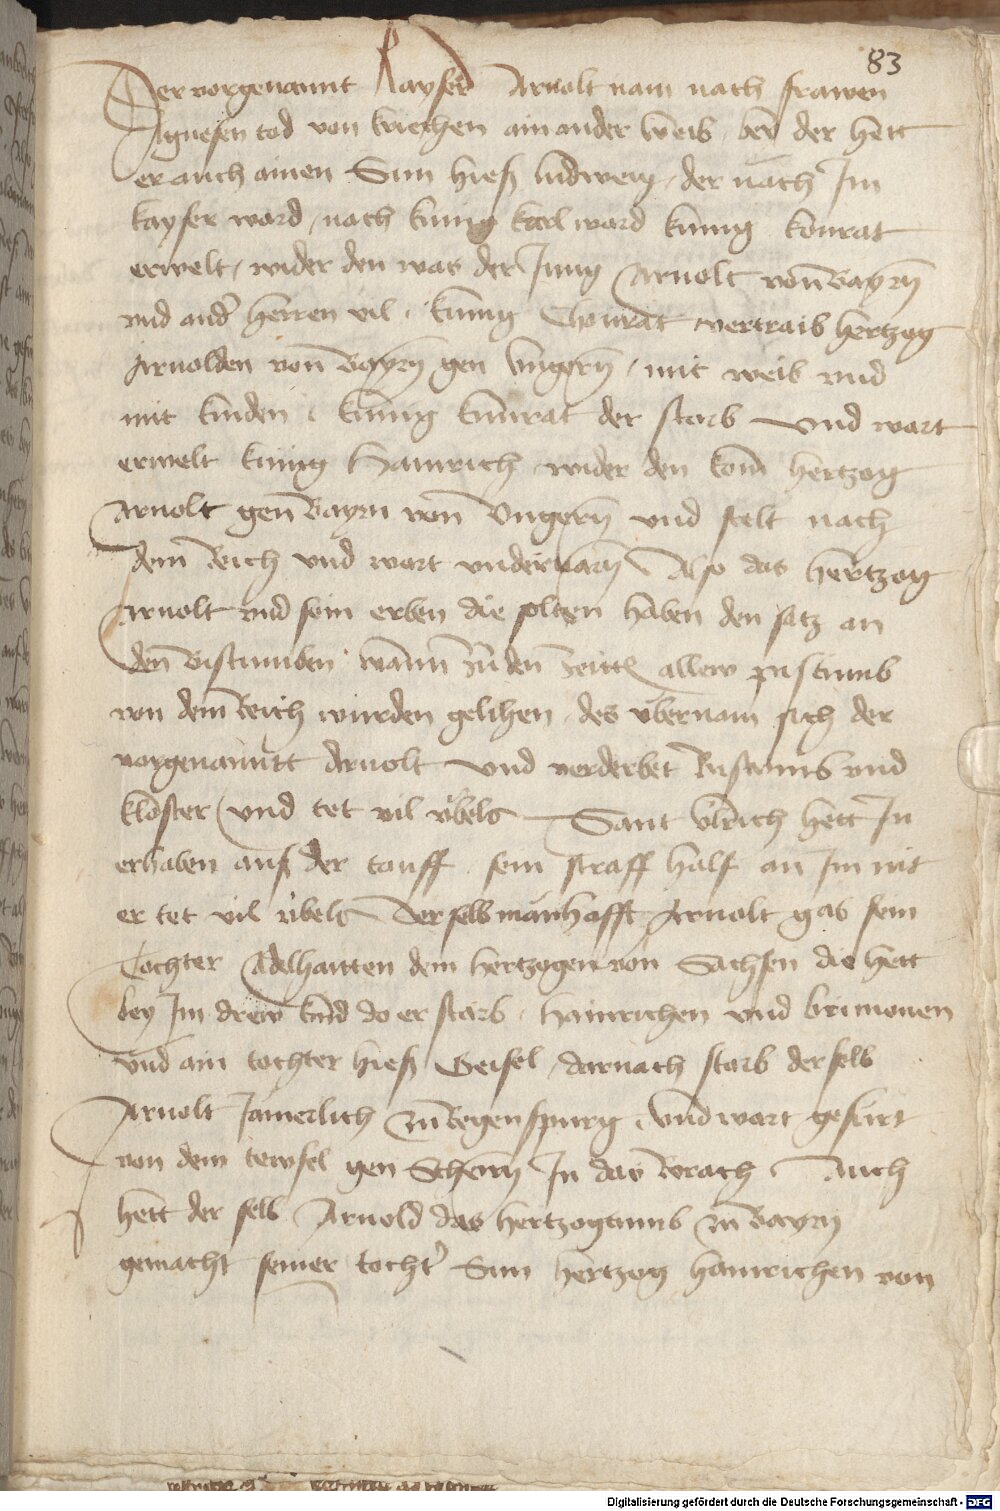 83
Der vorgenannt kayser Arnolt nam nach frawen
Agnesen tod von kriechen ain ander weib bey der hett
er auch ainen Sun hieß ludweig der nach Im
kayser ward nach kunig karl ward kunig konrat
erwelt wider den was der Jung Arnolt von Bayrn
vnd ander herren vil kunig Chonrat vertraib hertzog
Arnolden von Bayrn gen vngern mit weib vnd
mit kinden kunig kunrat der starb vnd wart
erwelt kunig Hainrich wider den kom hertzog
Arnolt gen Bayrn von Vngern vnd stelt nach
dem Reich vnd wart Also das hertzog
Arnolt vnd sein erben die solten haben den satz an
den Bistumben wann zu den zeiten allew pistumb
von dem Reich wurden gelihen des vbernam sich der
vorgenanntt Arnolt vnd verderbet Bistumb vnd
kloster vnd tet vil vbels Sant vlrich hett In
erhaben auß der tauff sein straff half an Im nit
er tet vil vbels Der selb manhafft Arnolt gab sein
Tochter Adelhaitten dem hertzogen von Sachsen die hett
bey Im drew kind do er starb Hainrichen vnd brunonen
vnd ain tochter hieß Geisel darnach starb der selb
Arnolt Jamerlich zu Regenspurg vnd wart gefürt
von dem tewfel gen Scheyrn In das Auch
hett der selb Arnold das hertzogtumb zu Bayrn
gemacht seiner tochter Sun hertzog hainrichen von
Digitalisierung gefördert durch die Deutsche Forschungsgemeinschaft - DFG